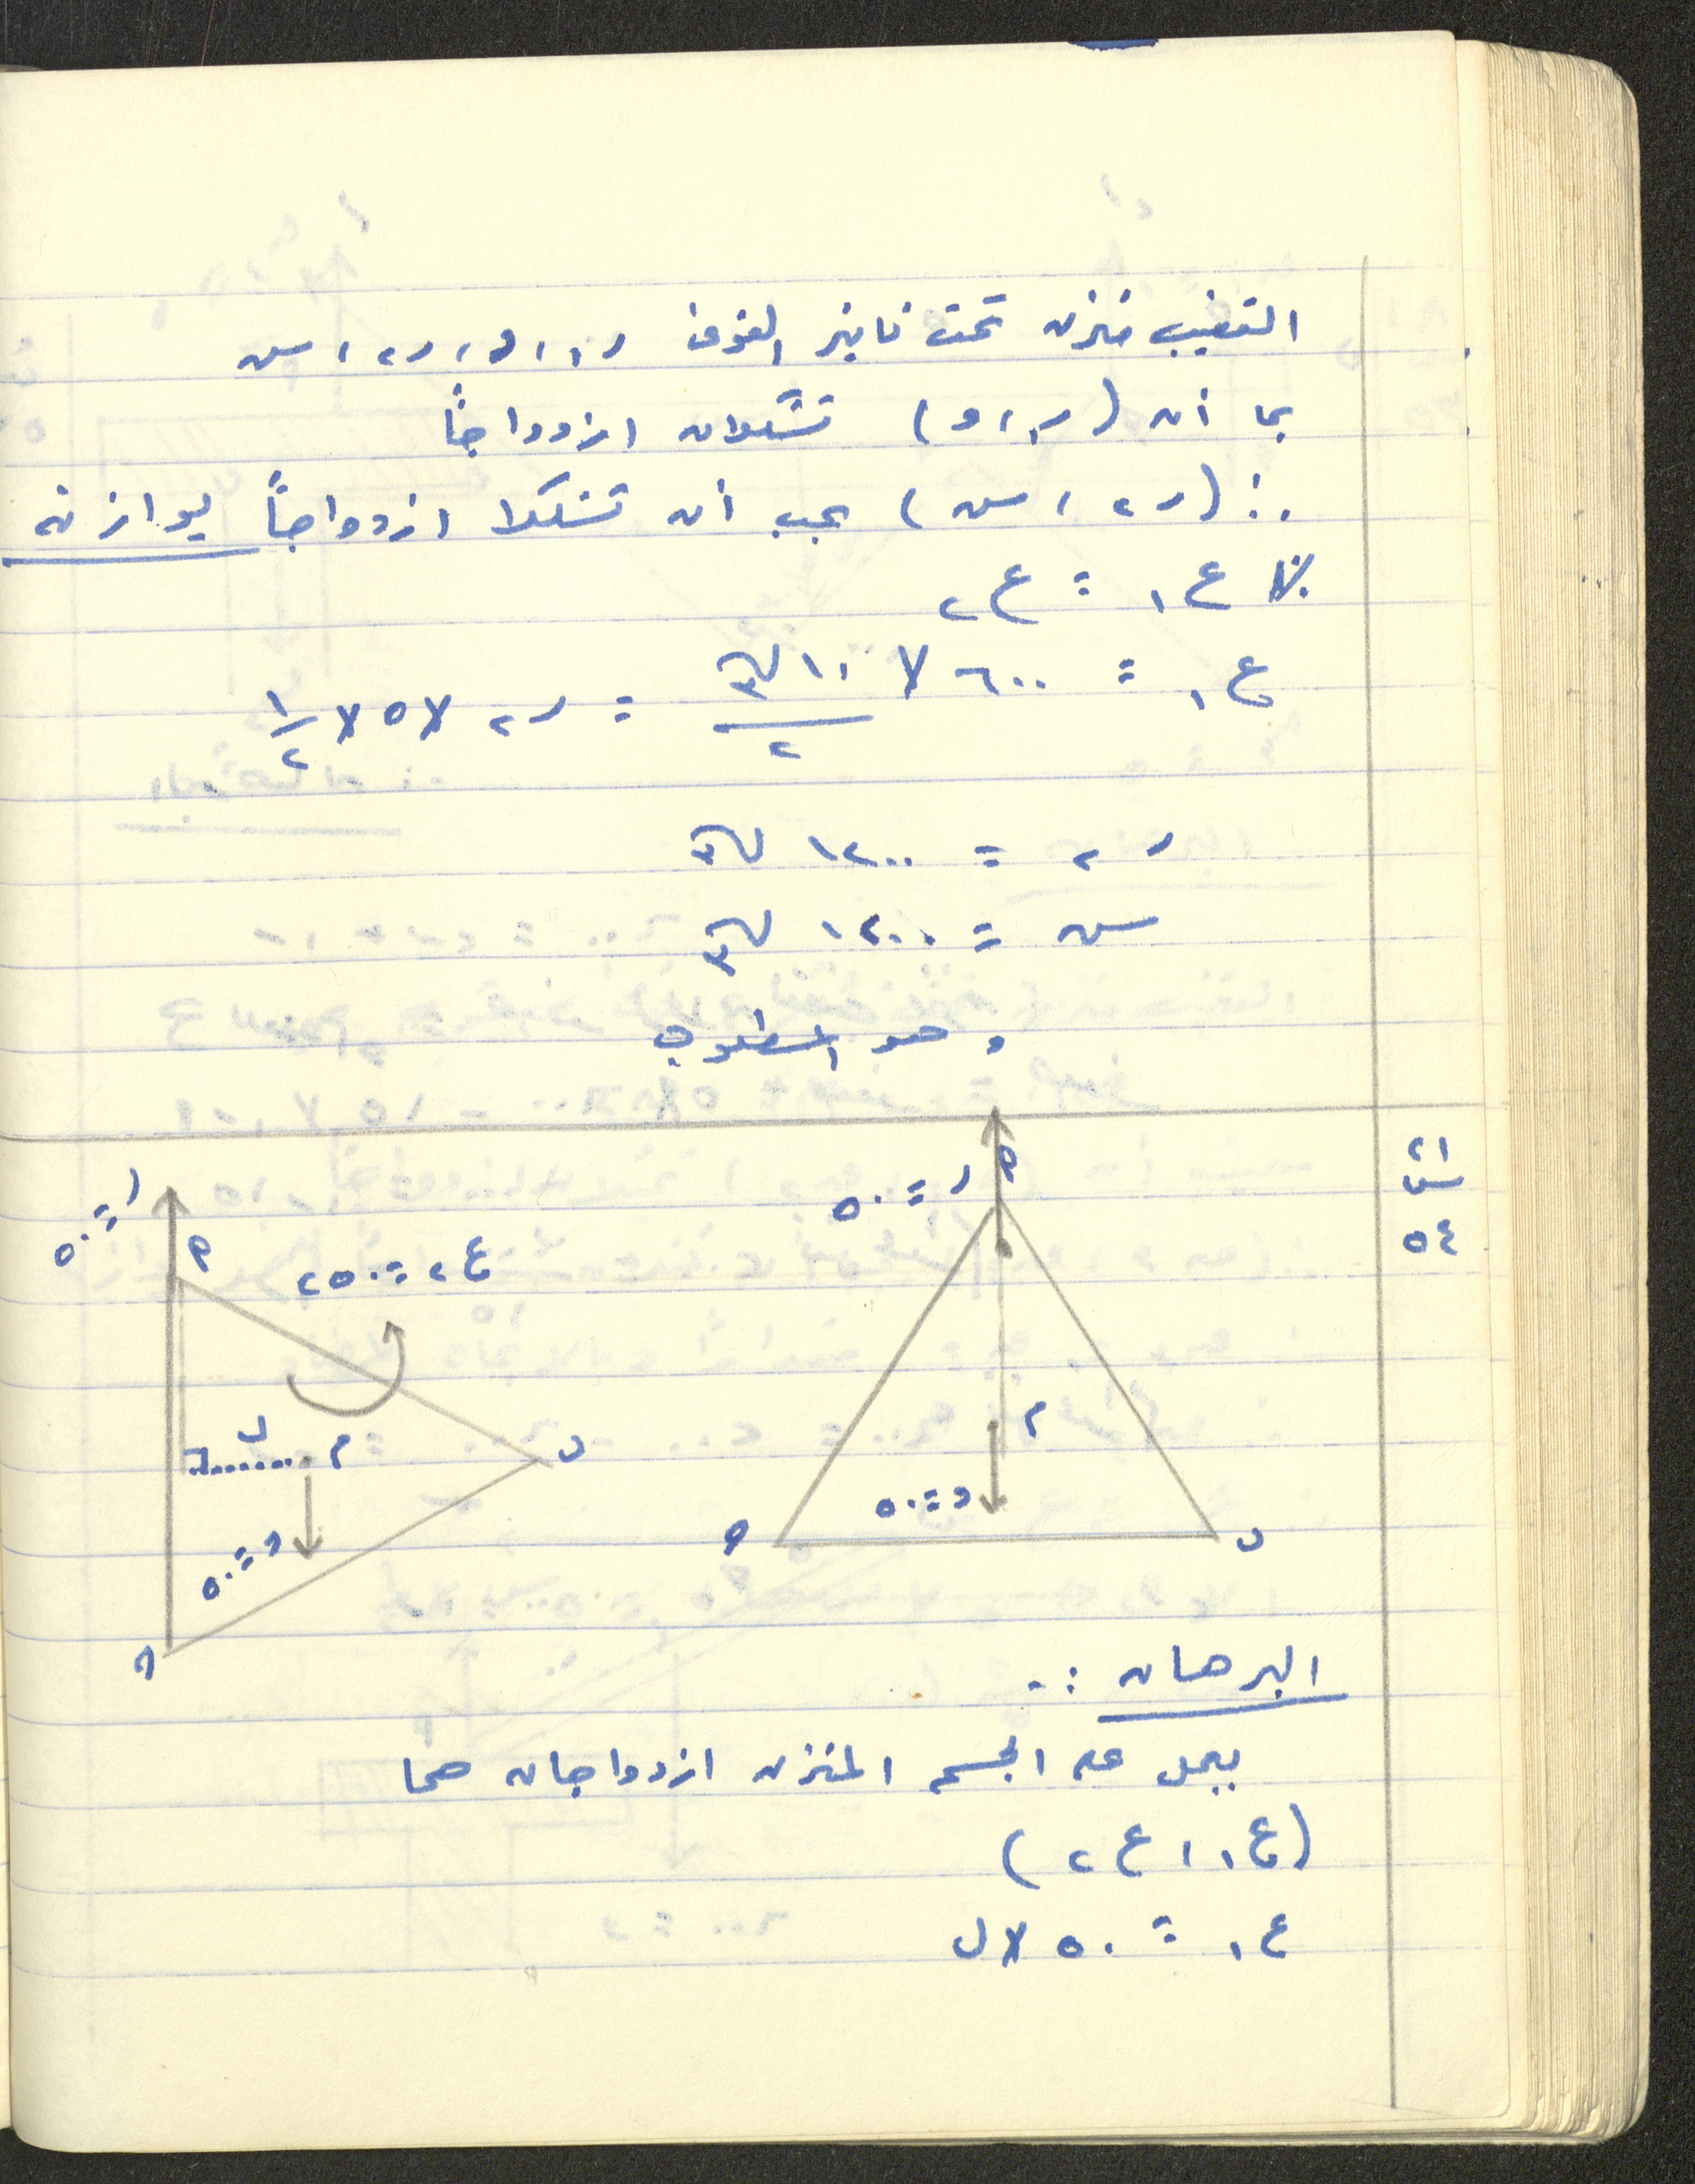 القضيب متزن تحت تأثير القوى ر١، و، ر٢، س
بما أن (ر١، و) تشكلان ازدواجاً
∴ (ر٢، س) يجب أن تشكلا ازدواجاً يوازنه
ع١ = ع٢
ع١ = ٦٠٠ × ١٠√٣/٢ = ر٢ × ٥ × ١/٢
ر٢ = ١٢٠٠√٣
س = ١٢٠٠√٣
وهو المطلوب
٢١
س
٥٤
ر = ٥٠
م
و = ٥٠
ب
ر = ٥٠
ع٢ = ٢٥٠
ل
م
ب
و = ٥٠
البرهان :.
يعمل على الجسم المتزن ازدواجان هما
(ع١، ع٢)
ع١ = ٥٠ × ل